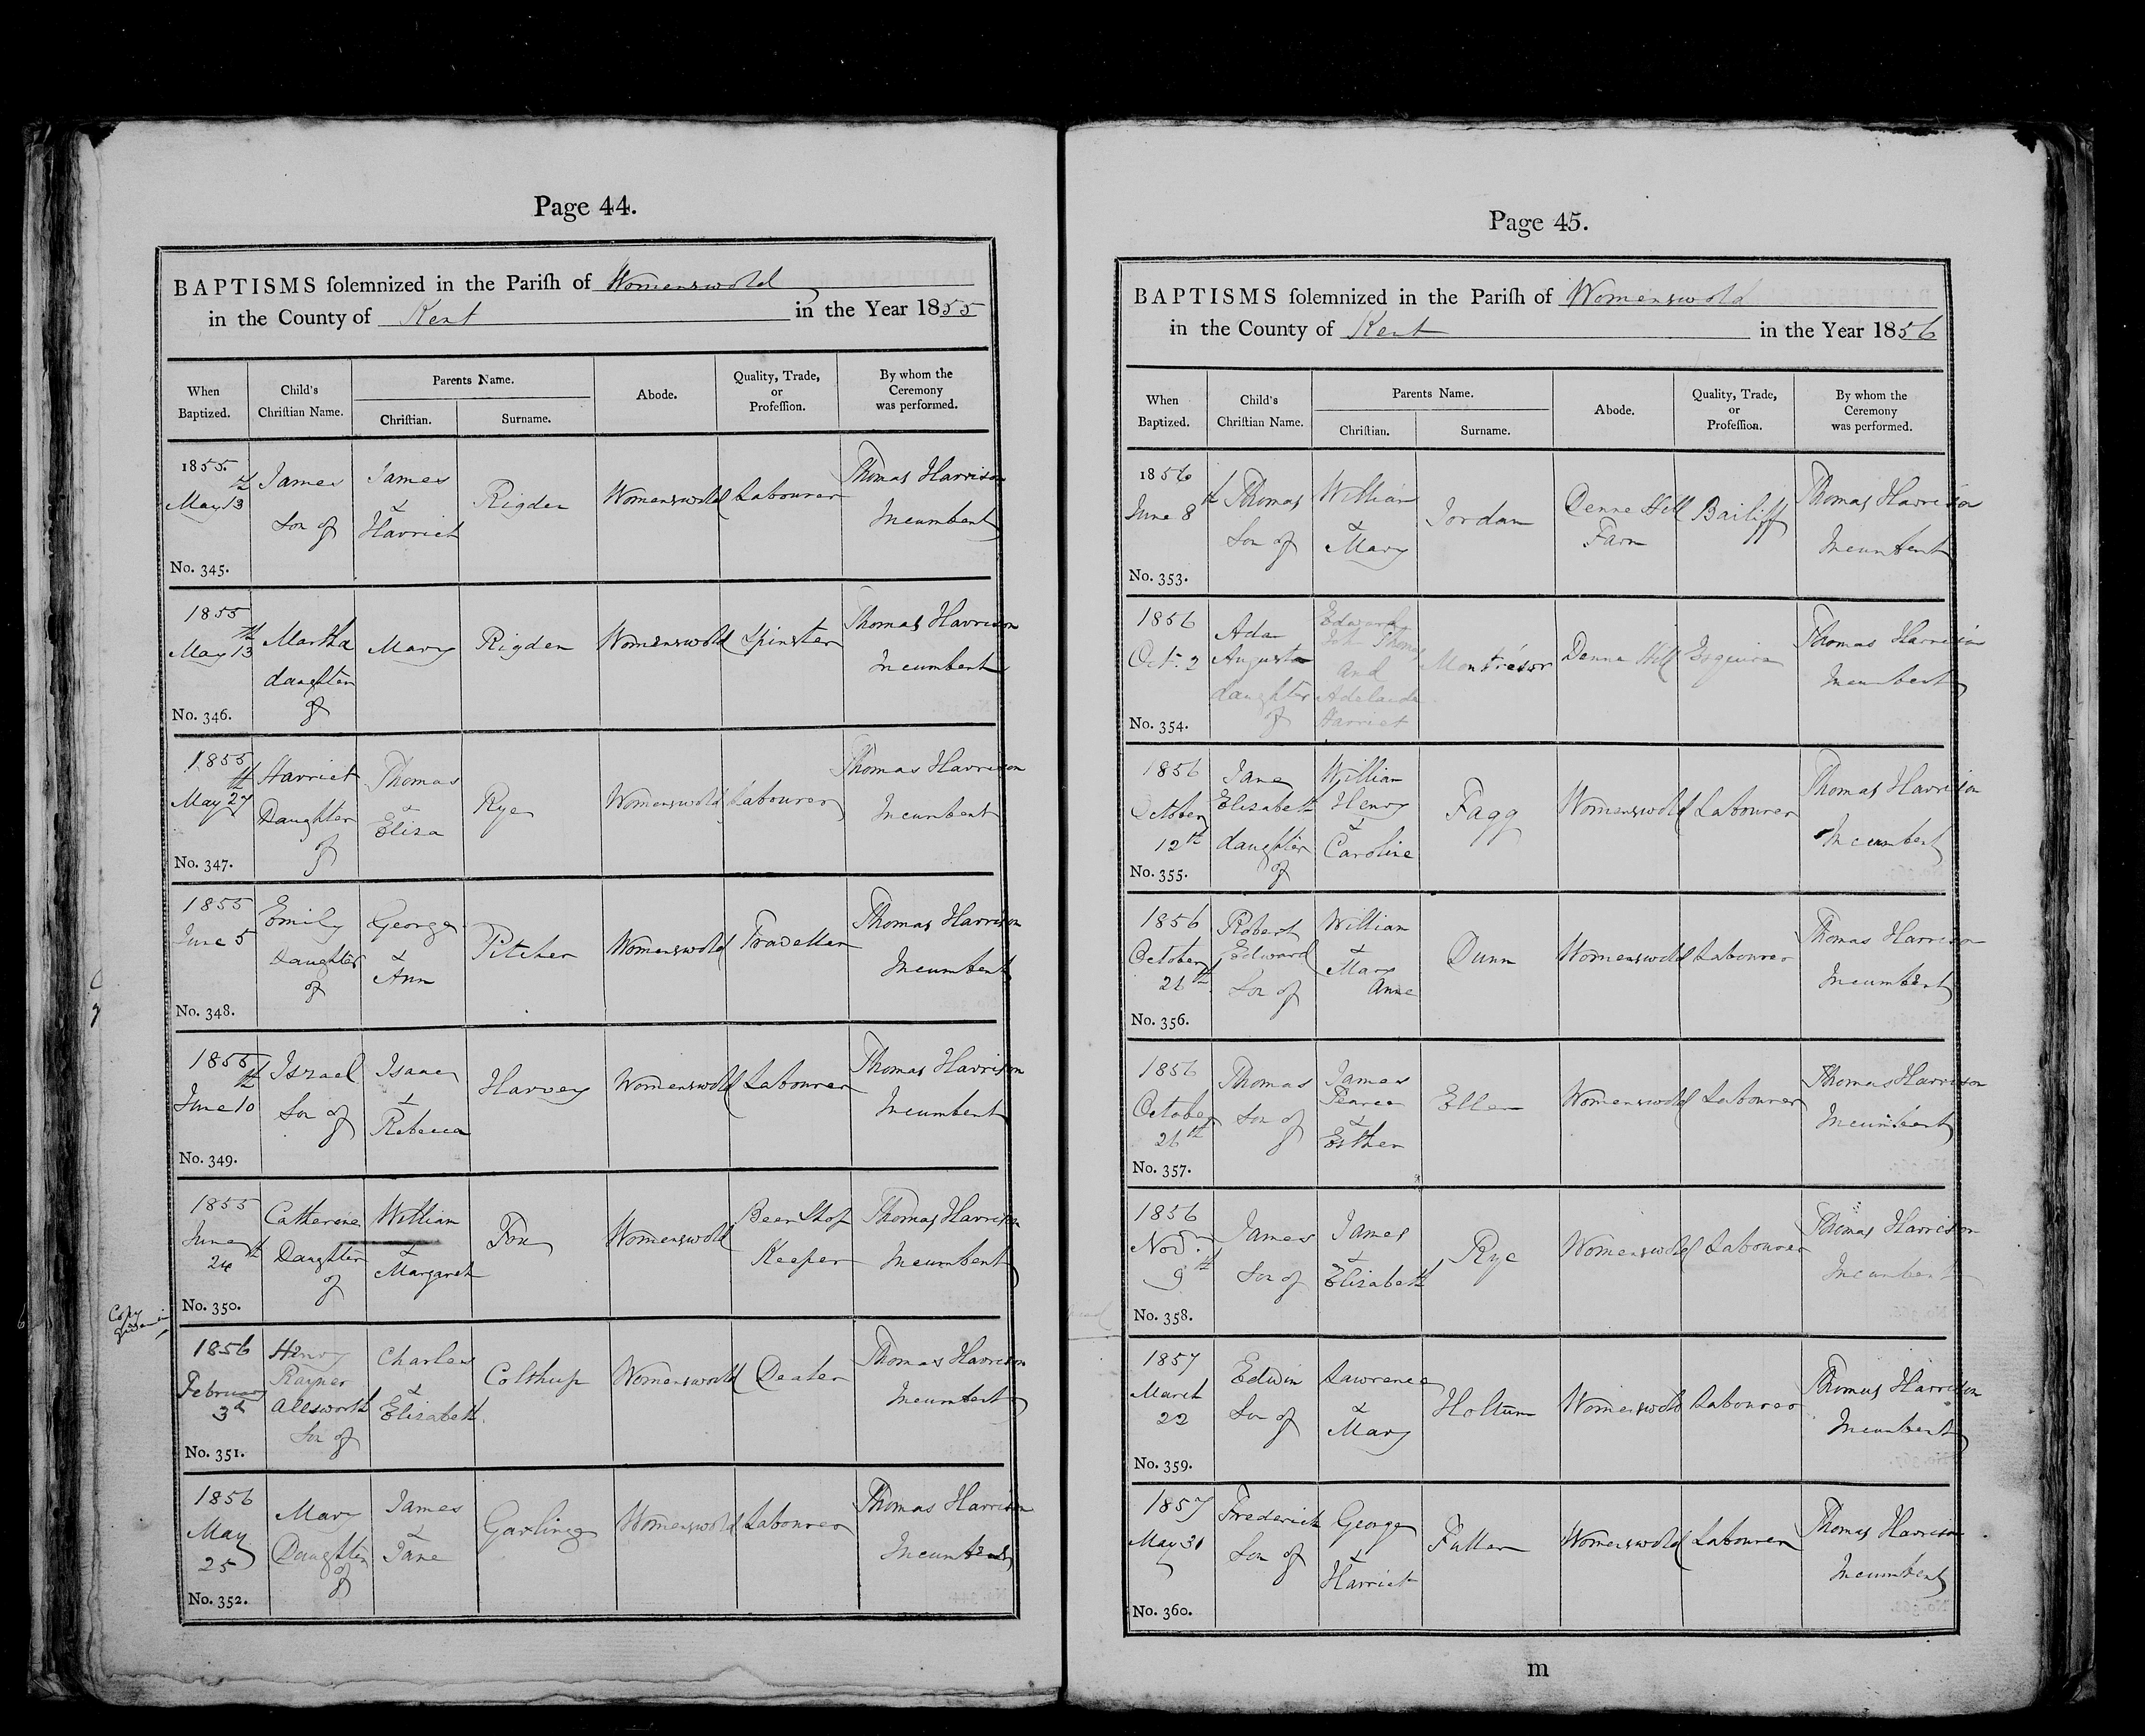 Page 44.
BAPTISMS solemnized in the Parish of Womenswold
in the County of Kent in the Year 1855
When Baptized. Child's Christian Name. Parents Name. Christian. Surname. Abode. Quality, Trade, or Profession. By whom the Ceremony was performed.
1855. May 13th James Son of James & Harriet Rigden Womenswold Labourer Thomas Harrison Incumbent
No. 345.
1855 May 13th Martha daughter of Mary Rigden Womenswold Spinster Thomas Harrison Incumbent
No. 346.
1855 May 27th Harriet Daughter of Thomas & Eliza Rye Womenswold Labourer Thomas Harrison Incumbent
No. 347.
1855 June 5 Emily Daughter of George & Ann Pitcher Womenswold Traveller Thomas Harrison Incumbent
No. 348.
1855 June 10th Israel Son of Isaac & Rebecca Harvey Womenswold Labourer Thomas Harrison Incumbent
No. 349.
1855 June 24th Catherine Daughter of William & Margaret Fox Womenswold Beer Shop Keeper Thomas Harrison Incumbent
No. 350.
Copy given
1856 February 3d Henry Rayner Allsworth Son of Charles & Elizabeth Colthup Womenswold Dealer Thomas Harrison Incumbent
No. 351.
1856 May 25 Mary Daughter of James & Jane Garling Womenswold Labourer Thomas Harrison Incumbent
No. 352.
Page 45.
BAPTISMS solemnized in the Parish of Womenswold
in the County of Kent in the Year 1856
When Baptized. Child's Christian Name. Parents Name. Christian. Surname. Abode. Quality, Trade, or Profession. By whom the Ceremony was performed.
1856 June 8th Thomas Son of William & Mary Jordan Denne Hill Farm Bailiff Thomas Harrison Incumbent
No. 353.
1856 Oct. 2 Ada Augusta daughter of Edward Thomas and Adelaide Harriet Montrésor Denne Hill Esquire Thomas Harrison Incumbent
No. 354.
1856 October 12th Jane Elizabeth daughter of William Henry & Caroline Fagg Womenswold Labourer Thomas Harrison Incumbent
No. 355.
1856 October 26th Robert Edward Son of William & Mary Anne Dunn Womenswold Labourer Thomas Harrison Incumbent
No. 356.
1856 October 26th Thomas Son of James Pearce & Esther Ellen Womenswold Labourer Thomas Harrison Incumbent
No. 357.
1856 Nov. 9th James Son of James & Elizabeth Rye Womenswold Labourer Thomas Harrison Incumbent
No. 358.
1857 March 22 Edwin Son of Lawrence & Mary Holtum Womenswold Labourer Thomas Harrison Incumbent
No. 359.
1857 May 31 Frederick Son of George & Harriet Fuller Womenswold Labourer Thomas Harrison Incumbent
No. 360.
m